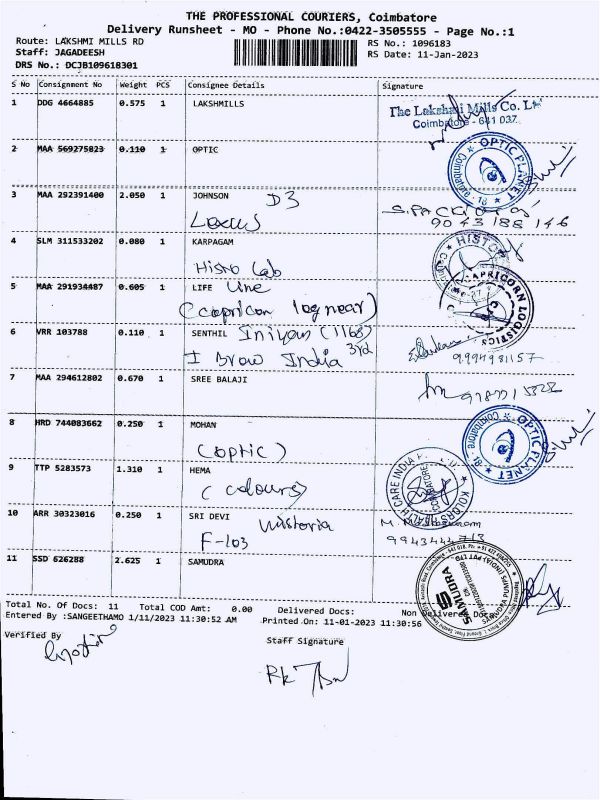 THE PROFESSIONAL COURIERS, Coimbatore
Delivery Runsheet - MO - Phone No.:0422-3505555 - Page No.:1
Route: LAKSHMI MILLS RD
RS No.: 1096183
Staff: JAGADEESH
RS Date: 11-Jan-2023
DRS No.: DCJB109618301
S No Consignment No Weight PCS Consignee Details Signature
1 DDG 4664885 0.575 1 LAKSHMILLS
The Lakshmi Mills Co. Lt
Coimbatore - 641 037.
2 MAA 569275823 0.110 1 OPTIC
OPTIC PLANET Coimbatore -18
3 MAA 292391400 2.050 1 JOHNSON D3
Locus
9043188146
4 SLM 311533202 0.080 1 KARPAGAM
Histo Lab
5 MAA 291934487 0.605 1 LIFE Line
(capricon log near)
CAPRICORN LOGISTICS
6 VRR 103788 0.110 1 SENTHIL Iniyan (1168)
I Brow India 3rd
9994981157
7 MAA 294612802 0.670 1 SREE BALAJI
8 HRD 744083662 0.250 1 MOHAN
(optic)
OPTIC PLANET Coimbatore -18
9 TTP 5283573 1.310 1 HEMA
(colours)
10 ARR 30323016 0.250 1 SRI DEVI
F-103
11 SSD 626288 2.625 1 SAMUDRA
SAMUDRA
Total No. Of Docs: 11 Total COD Amt: 0.00 Delivered Docs: Non Delivered Docs:
Entered By :SANGEETHAMO 1/11/2023 11:30:52 AM Printed On: 11-01-2023 11:30:56
Verified By
Staff Signature